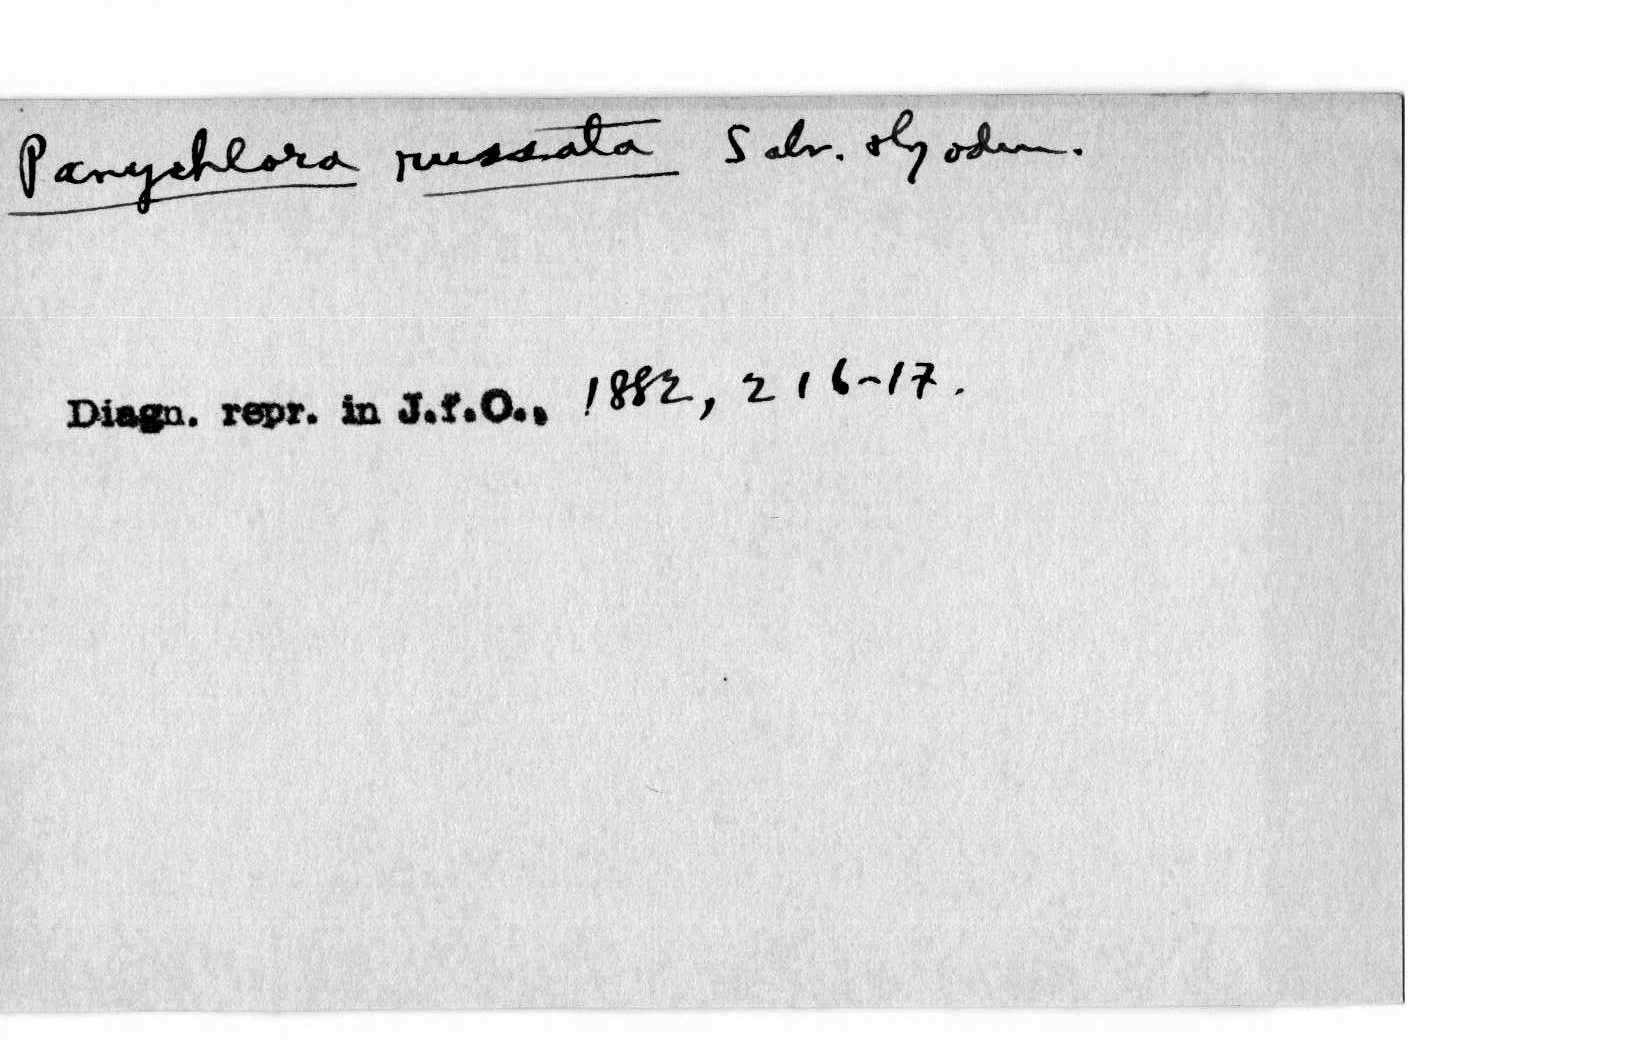 Panychlora russata Salv. & Godm.
Diagn. repr. in J.f.O., 1882, 216-17.